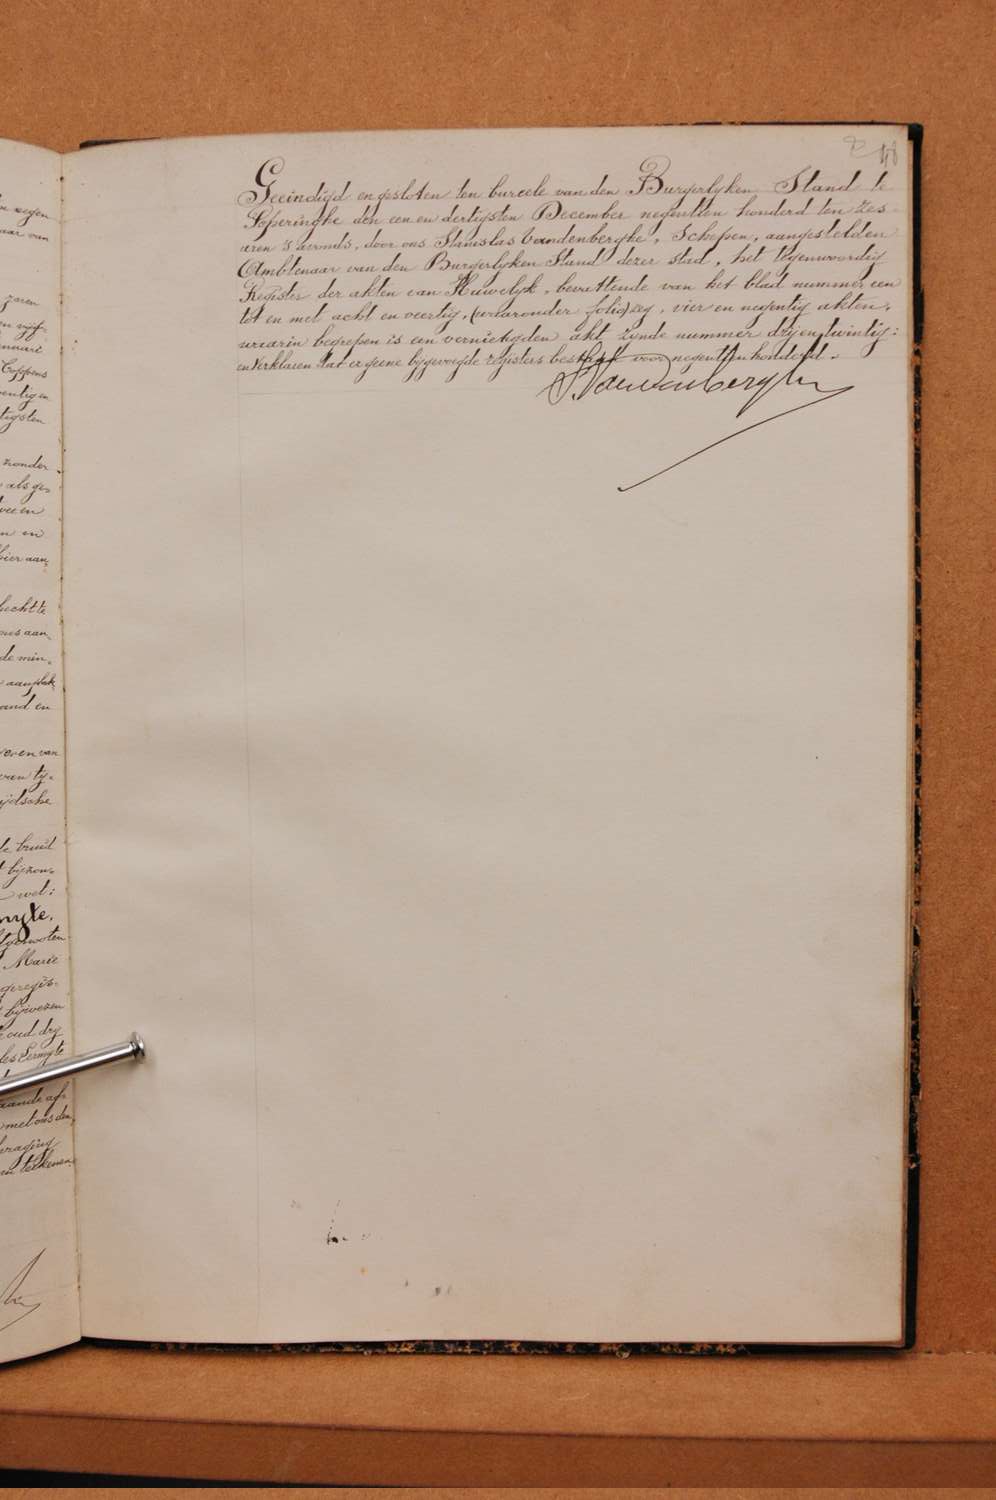 48
Geeindigd en gesloten ten bureele van den Burgerlyken Stand te
Poperinghe den een en dertigsten December negentien honderd ten zes
uren 's avonds, door ons Stanislas Vandenberghe, Schepen, aangestelden
Ambtenaar van den Burgerlyken Stand dezer stad, het tegenwoordig
Register der akten van Huwelyk, bevattende van het blad nummer een
tot en met acht en veertig, (waaronder folio) vier en negentig akten,
waarin begrepen is een vernietigden akt zynde nummer dryentwintig:
en Verklaren dat er geene bygevoegde registers bestaat voor negentien honderd.
S. Vandenberghe
zonder
als ge-
hier aan,
ons aan,
de min,
and en
even van
de bruid
t byzon-
wel:
Marie
geregis-
bywezen
oud dry
aande af-
met ons den,